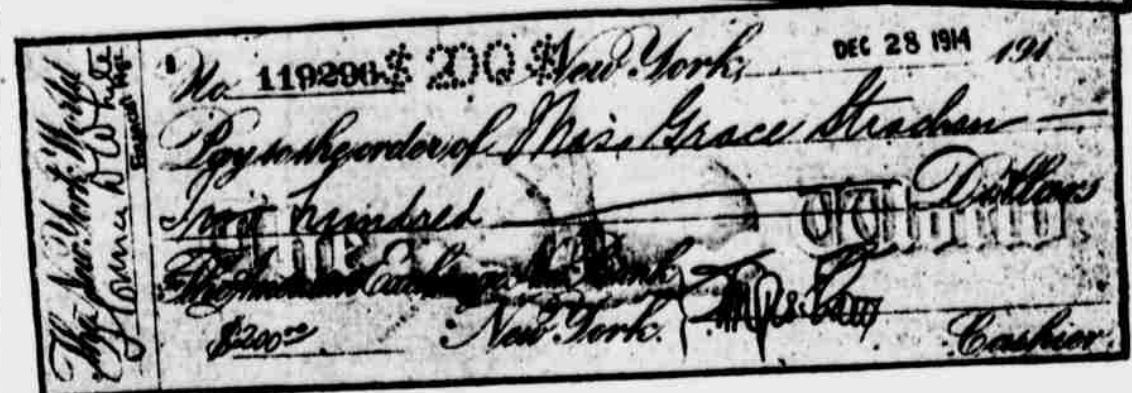 The New York World
Financial Mgr.
No. 119290 $ 200 $ New York, DEC 28 1914 191
Pay to the order of Miss Grace Strachan
Two hundred Dollars
The World
The American Exchange Nat. Bank
$200.00 New York. Cashier.